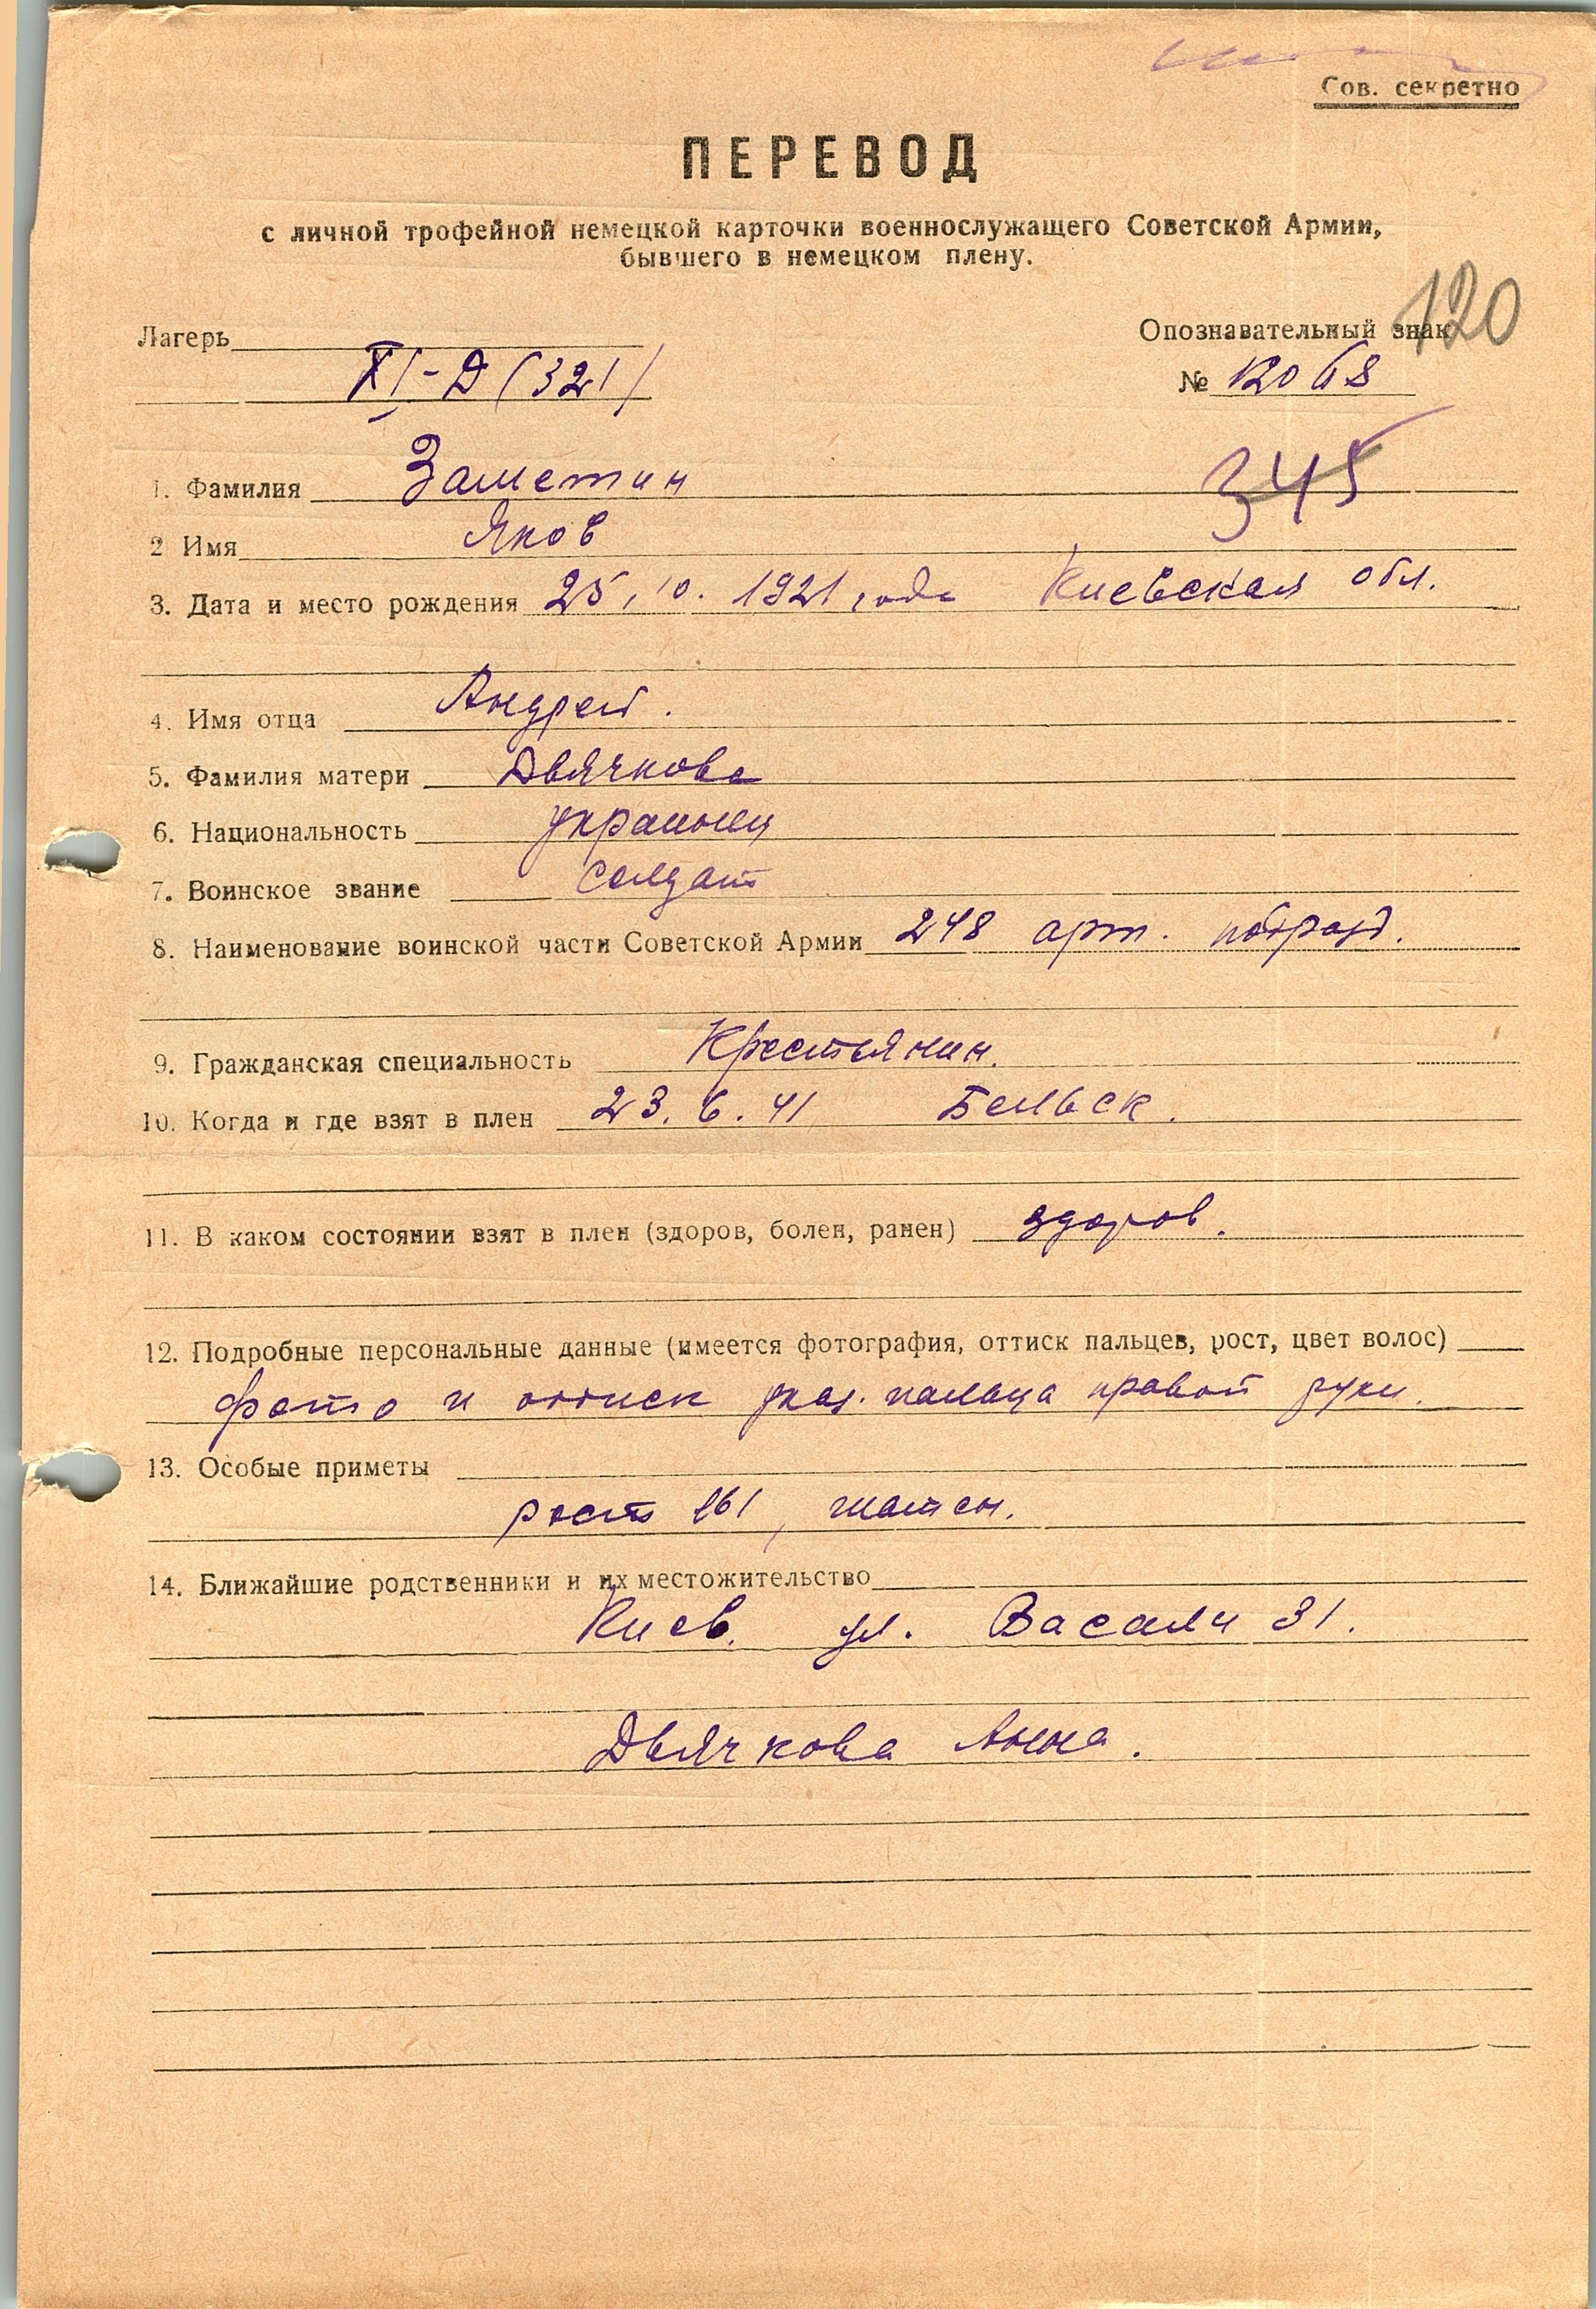 Сов. секретно
ПЕРЕВОД
с личной трофейной немецкой карточки военнослужащего Советской Армии,
бывшего в немецком плену.
120
Лагерь
Опознавательный знак
XI-Д (321)
№ 12068
345
1. Фамилия Заметин
2 Имя Яков
3. Дата и место рождения 25.10.1921 года Киевская обл.
4. Имя отца Андрей.
5. Фамилия матери Двячкова
6. Национальность украинец
7. Воинское звание солдат
8. Наименование воинской части Советской Армии 248 арт. подразд.
9. Гражданская специальность Крестьянин.
10. Когда и где взят в плен 23.6.41 Бельск.
11. В каком состоянии взят в плен (здоров, болен, ранен) здоров.
12. Подробные персональные данные (имеется фотография, оттиск пальцев, рост, цвет волос)
фото и оттиск указ. пальца правой руки.
13. Особые приметы
рост 161, шатен.
14. Ближайшие родственники и их местожительство
Киев. ул. Васали 31.
Двячкова Анна.